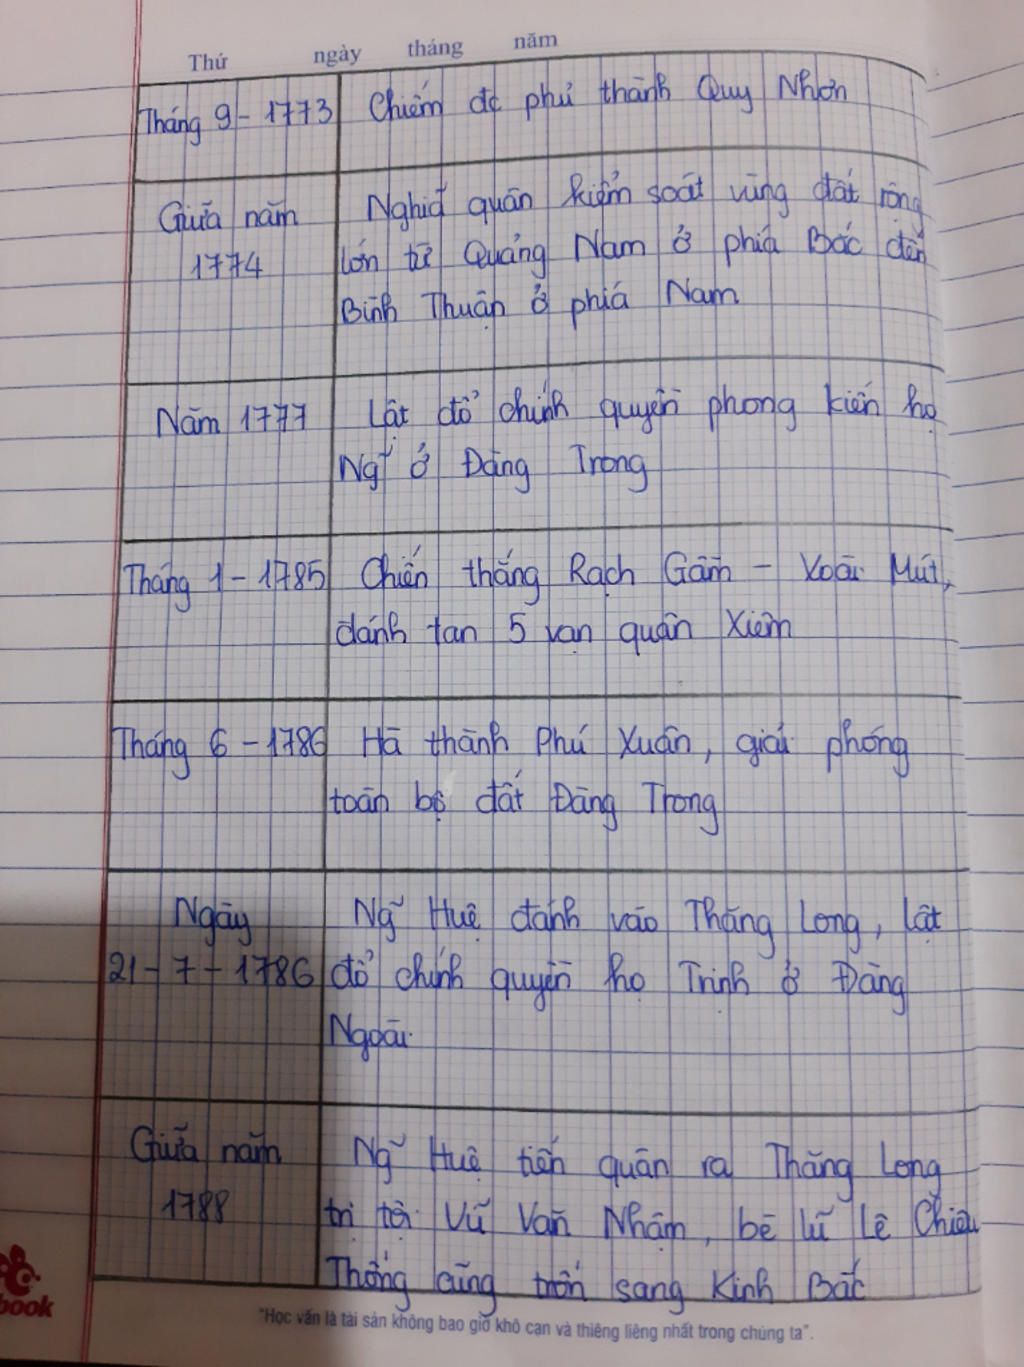 Thứ ngày tháng năm
Tháng 9 - 1773 Chiếm đc phủ thành Quy Nhơn
Giữa năm 1774 Nghĩa quân kiểm soát vùng đất rộng
lớn từ Quảng Nam ở phía Bắc đến
Bình Thuận ở phía Nam
Năm 1777 Lật đổ chính quyền phong kiến họ
Ng̃ ở Đàng Trong
Tháng 1 - 1785 Chiến thắng Rạch Gầm - Xoài Mút,
đánh tan 5 vạn quân Xiêm
Tháng 6 - 1786 Hạ thành Phú Xuân, giải phóng
toàn bộ đất Đàng Trong
Ngày Ng̃ Huệ đánh vào Thăng Long, lật
21 - 7 - 1786 đổ chính quyền họ Trịnh ở Đàng
Ngoài.
Giữa năm Ng̃ Huệ tiến quân ra Thăng Long
1788 trị tội Vũ Văn Nhậm, bè lũ Lê Chiêu
Thống cũng trốn sang Kinh Bắc
book
"Học vấn là tài sản không bao giờ khô cạn và thiêng liêng nhất trong chúng ta".